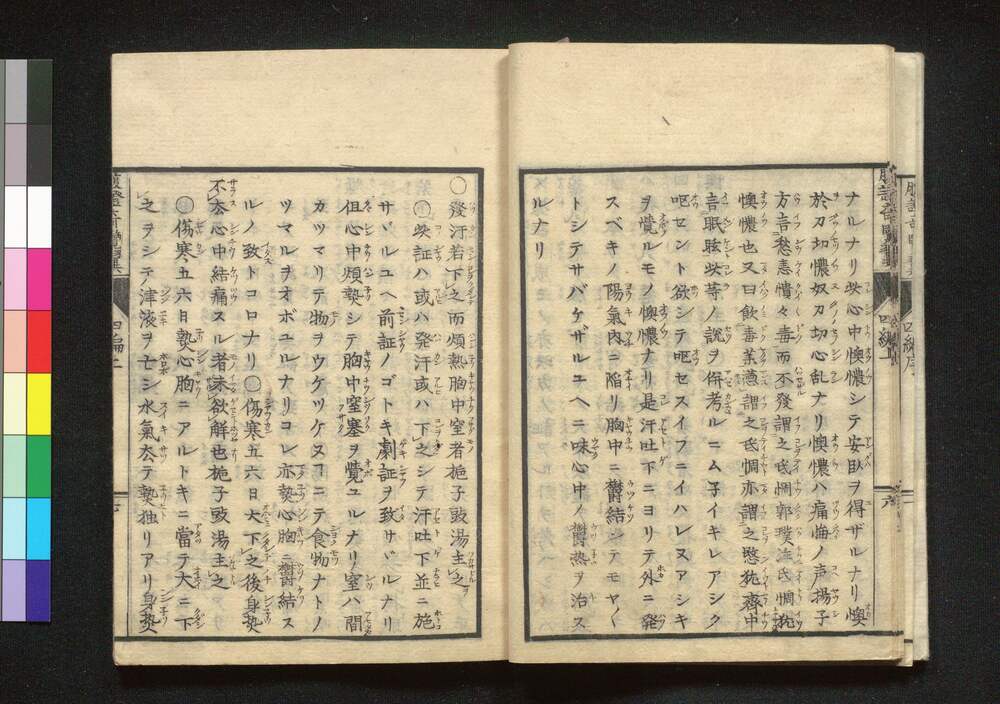 ナルナリ㕝心中懊憹シテ安臥ヲ得ザルナリ懊
於刀切憹奴刀切心乱ナリ懊憹ハ痛悔ノ声揚子
方言愁恚憒々毒而不發謂之氐惆郭璞注氐惆犹
懊憹也又曰飲毒薬懣謂之氐惆亦謂之愍犹齊中
言眠眩㕝等ノ説ヲ併考ルニム子イキレアシク
呕セント欲シテ呕セスイフニイハレヌアシキ
ヲ覚ルモノ懊憹ナリ是汗吐下ニヨリテ外ニ発
スベキノ陽氣内ニ陥リ胸中ニ欝結シテモヤ〱
トシテサバケザルユヘニ味心中ノ欝熱ヲ治ス
ルナリ
○發汗若下之而煩熱胸中窒者栀子豉湯主之
㕝証ハ或ハ発汗或ハ下之シテ汗吐下並ニ施
サヾルユヘ前証ノゴトキ劇証ヲ致サヾルナリ
但心中煩熱シテ胸中窒塞ヲ覚ユルナリ窒ハ間
カツマリテ物ヲウケツケヌコニテ食物ナトノ
ツマルヲオボユルナリコレ亦熱心胸ニ欝結ス
ルノ致トコロナリ○傷寒五六日大下之後身熱
不去心中結痛スル者未欲解也栀子豉湯主之
傷寒五六日熱心胸ニアルトキニ當テ大ニ下
之ヲシテ津液ヲ亡シ水氣去テ熱独リアリ身熱